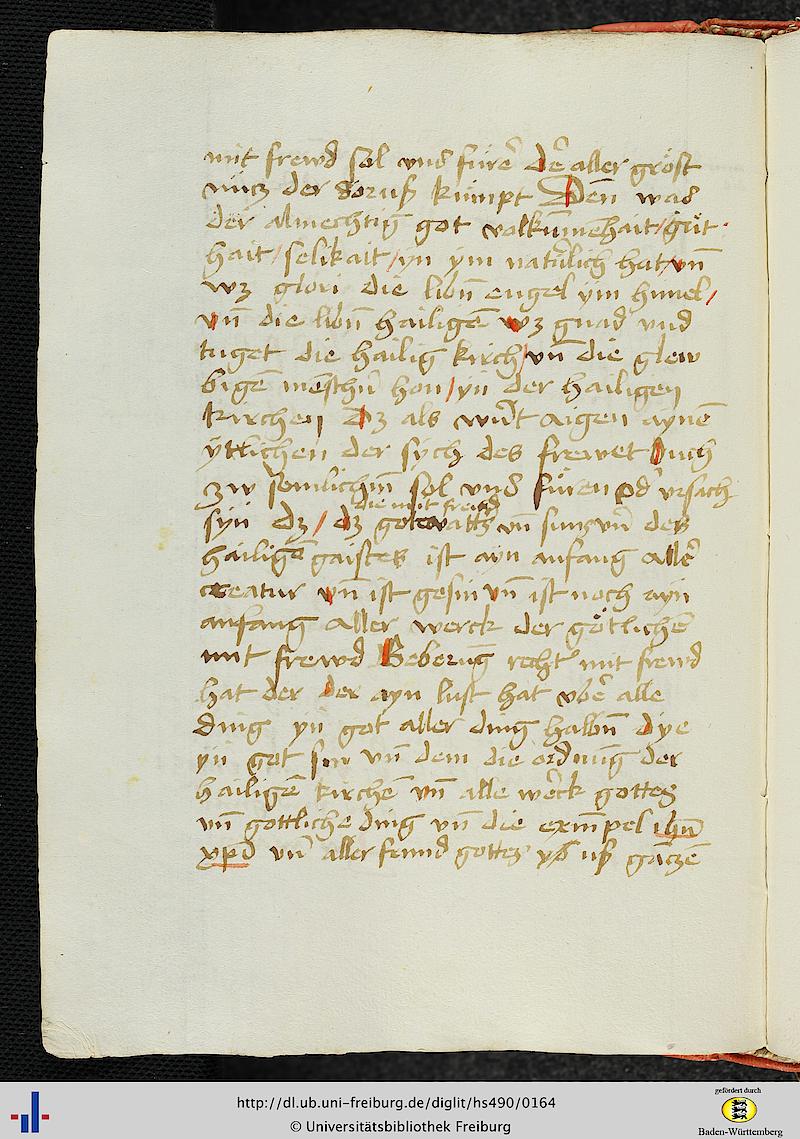 mit frewd sol vnd fürē dē aller gröst
nücz der doruß kumpt Den̄ was
der almechtig got volkūmēhait / güt
hait / selikait / yn ym natürlich hat / vn̄
wz glori die libn̄ engel ym himel /
vn̄ die libn̄ hailigē wz gnad vnd
tuget die hailig kirch / vn̄ die glew
bigē mēschn̄ hon / yn der hailigen
kirchen Dz als wirt aigen aynē
ytlichen der sych des frewet Ouch
zw sōmlichem sol vnd füren vrsach
die mit frewd
syn dz / dz gottes vn̄ des
hailigē gaistes ist ayn anfang aller
creatur vn̄ ist gesin vn̄ ist noch ayn
anfang aller werck der götlichē
mit frewd recht mit frewd
hat der der ayn lust hat vber alle
ding yn got aller ding halbn̄ dye
yn got sin vn̄ dem die ordnūg der
hailigē kirchē vn̄ alle werck gottes
vn̄ gottliche ding vn̄ die exempel ihū
xpī vn̄ aller frund gottes vß gāczē
http://dl.ub.uni-freiburg.de/diglit/hs490/0164
© Universitätsbibliothek Freiburg
gefördert durch
Baden-Württemberg